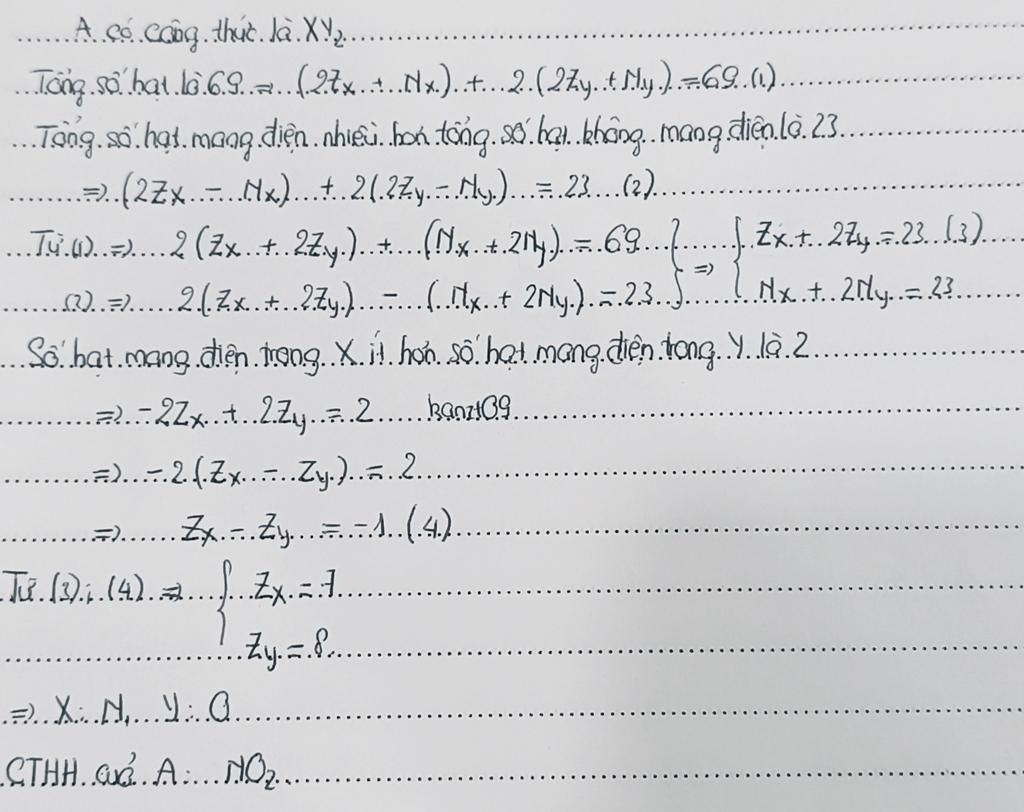 A có công thức là XY₂
Tổng số hạt là 69 => (2Zx + Nx) + 2.(2Zy + Ny) = 69 (1)
Tổng số hạt mang điện nhiều hơn tổng số hạt không mang điện là 23
=> (2Zx - Nx) + 2(2Zy - Ny) = 23 (2)
Từ (1) => 2(Zx + 2Zy) + (Nx + 2Ny) = 69 } => { Zx + 2Zy = 23 (3)
(2) => 2(Zx + 2Zy) - (Nx + 2Ny) = 23 } { Nx + 2Ny = 23
Số hạt mang điện trong X ít hơn số hạt mang điện trong Y là 2
=> -2Zx + 2Zy = 2
=> -2(Zx - Zy) = 2
=> Zx - Zy = -1 (4)
Từ (3); (4) => { Zx = 7
Zy = 8
=> X: N, Y: O
CTHH của A: NO₂